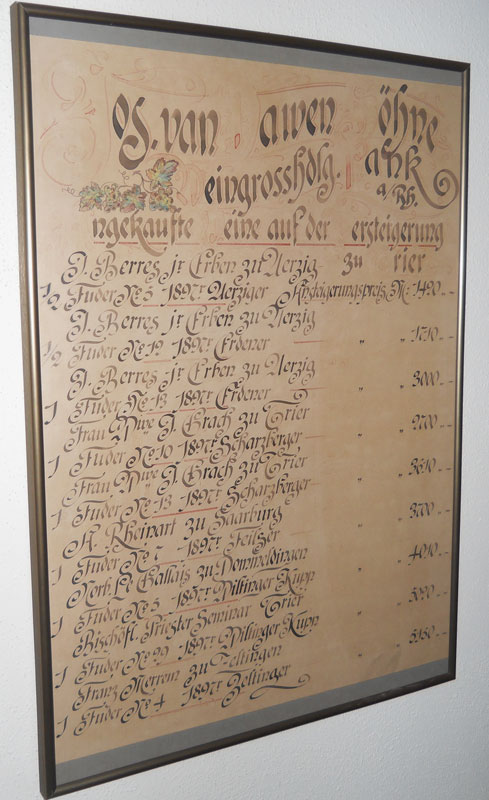 os. van awen öhne
eingrosshdlg. a/Rh.
ngekaufte eine auf der ersteigerung
zu rier
J. Berres jr Erben zu Uerzig
1/2 Fuder No 5 1897r Uerziger Ansteigerungspreis M. 1490 „ „
J. Berres jr Erben zu Uerzig
1/2 Fuder No 19 1897r Erdener „ „ 1710 „ „
J. Berres jr Erben zu Uerzig
1 Fuder No 13 1897r Erdener „ „ 3000 „ „
Frau Wwe J. Grach zu Trier
1 Fuder No 10 1897r Scharzberger „ „ 2700 „ „
Frau Wwe J. Grach zu Trier
1 Fuder No 13 1897r Scharzberger „ „ 3610 „ „
H. Rheinart zu Saarburg
1 Fuder No 7 1897r Feilser „ „ 3700 „ „
Norb. Le Gallais zu Dommeldingen
1 Fuder No 5 1897r Wiltinger Kupp „ „ 4010 „ „
Bischöfl. Priester Seminar Trier
1 Fuder No 99 1897r Wiltinger Kupp „ „ 5090 „ „
Franz Merrem zu Zeltingen
1 Fuder No 4 1897r Zeltinger „ „ 5150 „ „